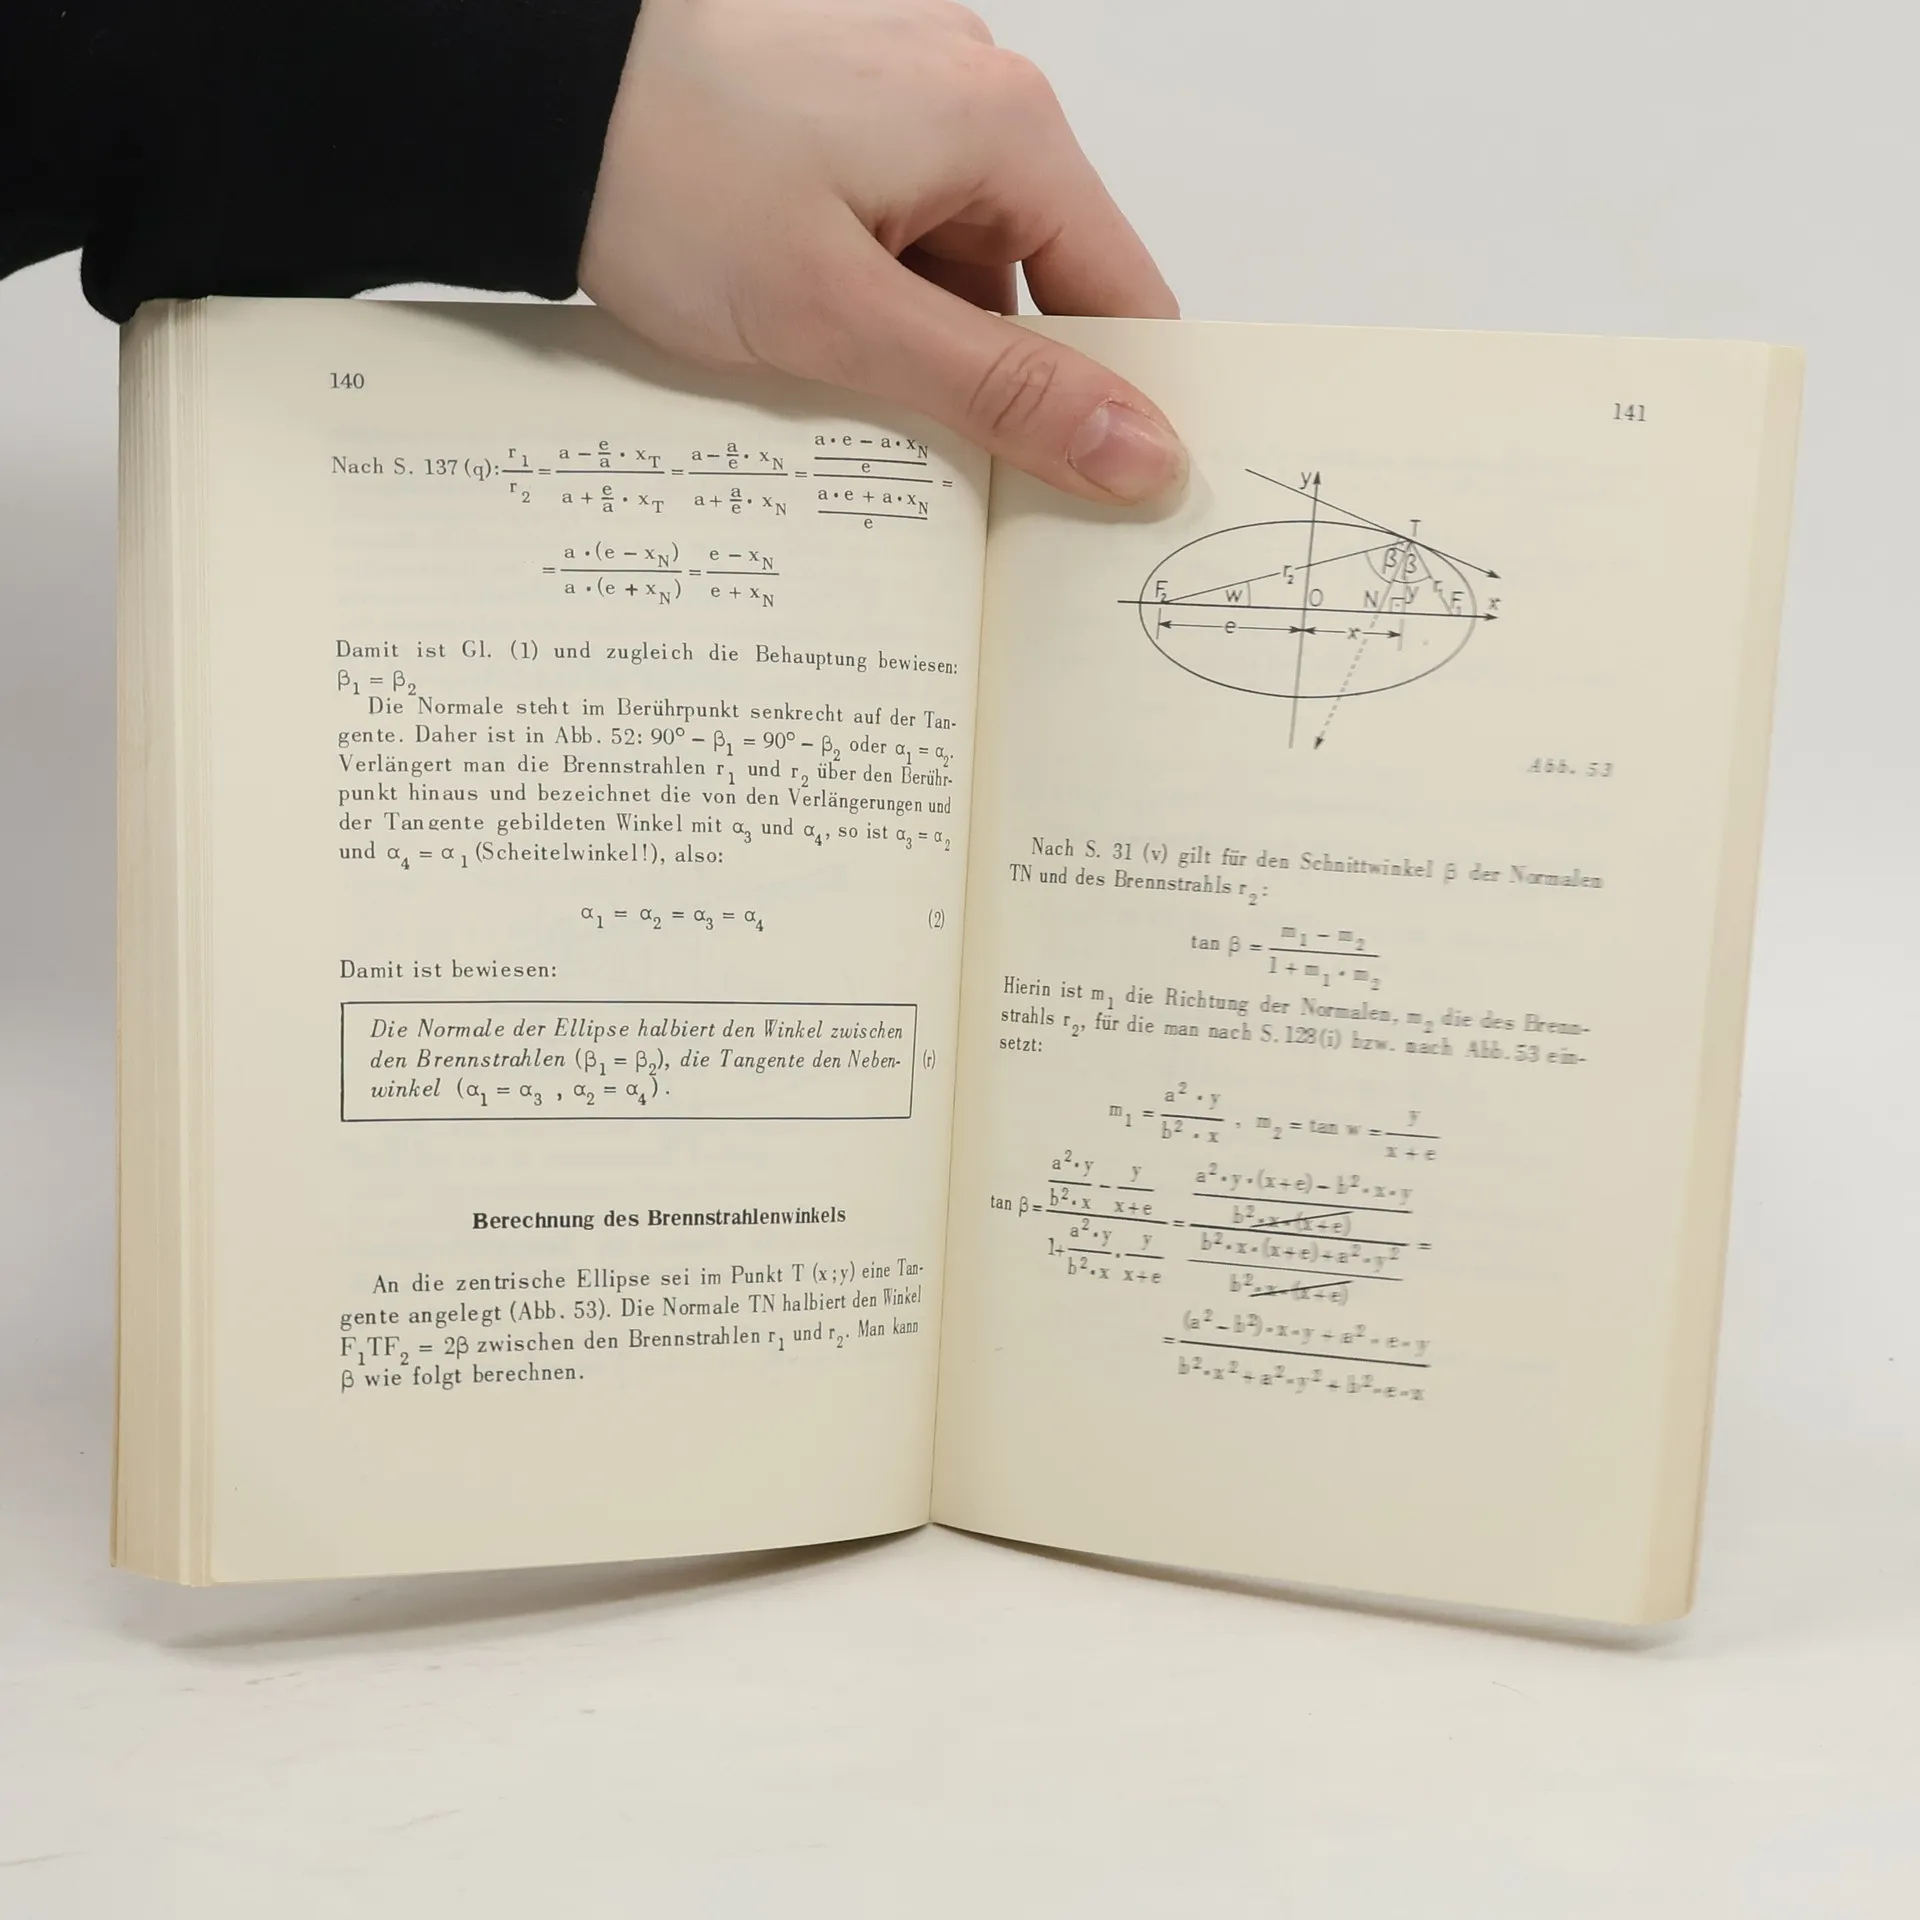 140
Nach S. 137 (q): r₁/r₂ = (a − e/a · x_T)/(a + e/a · x_T) = (a − a/e · x_N)/(a + a/e · x_N) = ((a · e − a · x_N)/e)/((a · e + a · x_N)/e) =
= (a · (e − x_N))/(a · (e + x_N)) = (e − x_N)/(e + x_N)
Damit ist Gl. (1) und zugleich die Behauptung bewiesen:
β₁ = β₂
Die Normale steht im Berührpunkt senkrecht auf der Tan-
gente. Daher ist in Abb. 52: 90° − β₁ = 90° − β₂ oder α₁ = α₂.
Verlängert man die Brennstrahlen r₁ und r₂ über den Berühr-
punkt hinaus und bezeichnet die von den Verlängerungen und
der Tangente gebildeten Winkel mit α₃ und α₄, so ist α₃ = α₂
und α₄ = α₁ (Scheitelwinkel!), also:
α₁ = α₂ = α₃ = α₄ (2)
Damit ist bewiesen:
Die Normale der Ellipse halbiert den Winkel zwischen
den Brennstrahlen (β₁ = β₂), die Tangente den Neben- (r)
winkel (α₁ = α₃ , α₂ = α₄).
Berechnung des Brennstrahlenwinkels
An die zentrische Ellipse sei im Punkt T (x;y) eine Tan-
gente angelegt (Abb. 53). Die Normale TN halbiert den Winkel
F₁TF₂ = 2β zwischen den Brennstrahlen r₁ und r₂. Man kann
β wie folgt berechnen.
141
y
T
β β
r₂ r₁
F₂ w O N y F₁ x
e x
Abb. 53
Nach S. 31 (v) gilt für den Schnittwinkel β der Normalen
TN und des Brennstrahls r₂:
tan β = (m₁ − m₂)/(1 + m₁ · m₂)
Hierin ist m₁ die Richtung der Normalen, m₂ die des Brenn-
strahls r₂, für die man nach S. 128(i) bzw. nach Abb. 53 ein-
setzt:
m₁ = (a² · y)/(b² · x) , m₂ = tan w = y/(x + e)
tan β = ((a²·y)/(b²·x) − y/(x+e))/(1 + (a²·y)/(b²·x) · y/(x+e)) = ((a²·y·(x+e) − b²·x·y)/(b²·x·(x+e)))/((b²·x·(x+e) + a²·y²)/(b²·x·(x+e))) =
= ((a² − b²)·x·y + a²·e·y)/(b²·x² + a²·y² + b²·e·x)